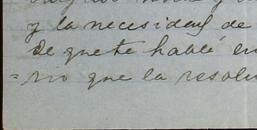 y la necesidad de
de que te hablé en
=rio que la resolu